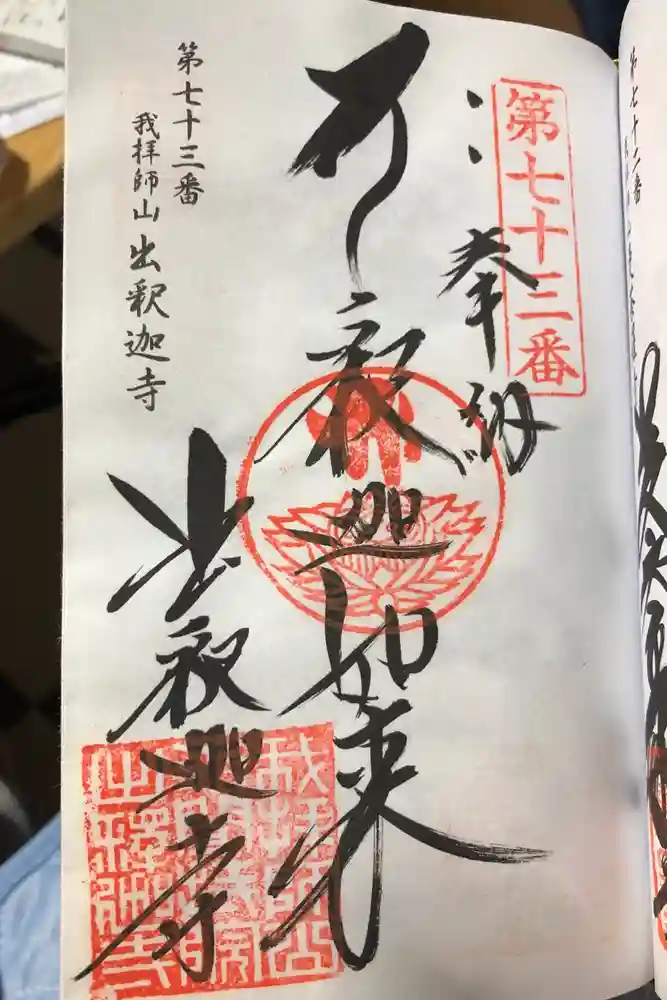 第七十三番
奉納
釈迦如来
出釈迦寺
第七十三番
我拝師山 出釈迦寺